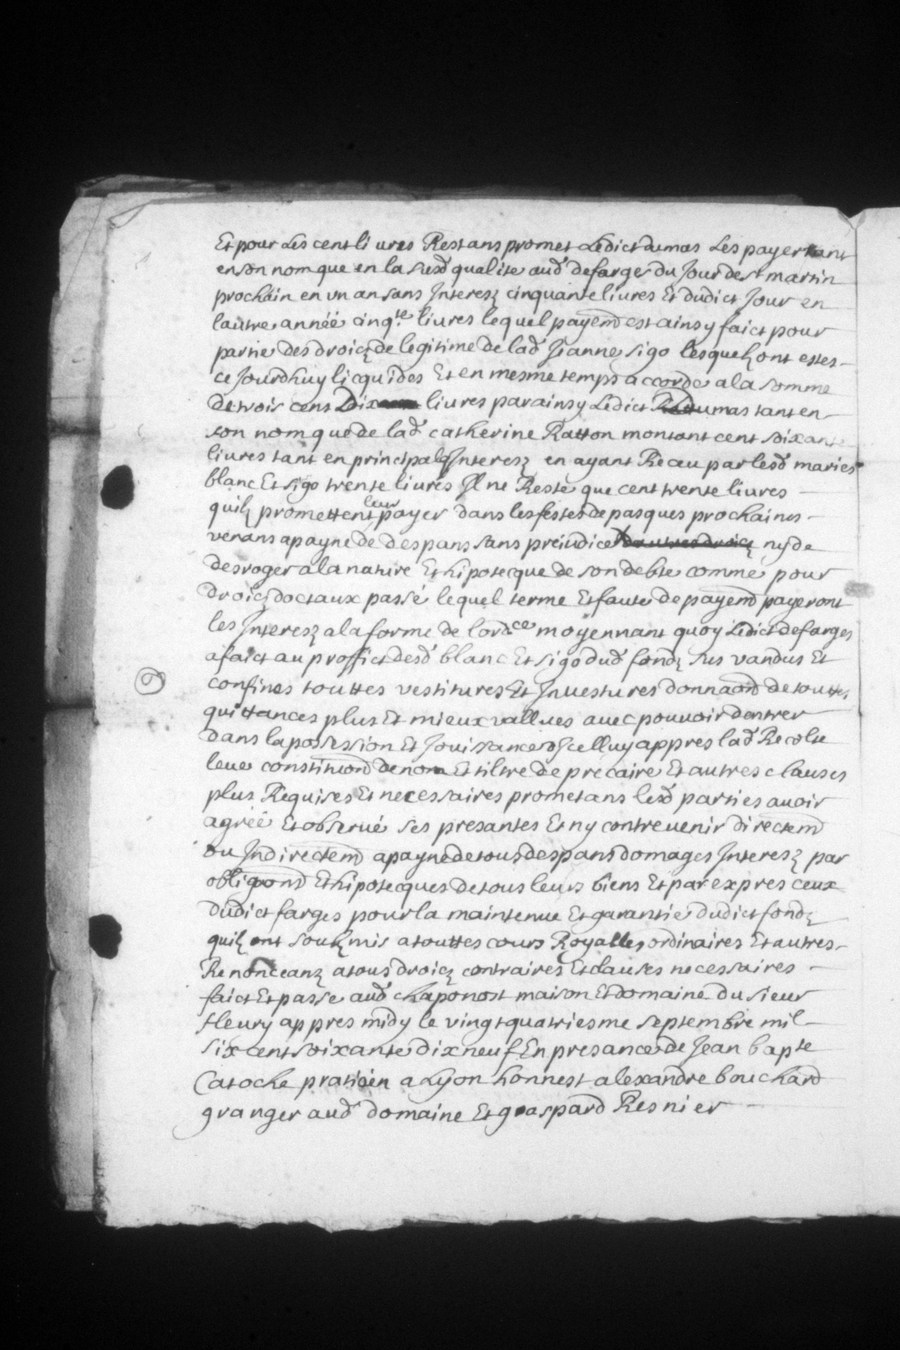 Et pour Les cent livres Restans promet Ledict dumas Les payer tant
en son nom que en la susd qualite aud defarge du Jour de st martin
prochain en un an sans Interesz cinquante livres Et dudict Jour en
lautre année cinq.te livres lequel payemd est ainsy faict pour
partie des droicz de legitime de lad Jeanne sigo lesquelz ont estes
ce Jourdhuy licquides Et en mesme temps accorde a la somme
de trois cens Dix livres par ainsy Ledict dumas tant en
son nom que de lad catherine Ratton montant cent soixante
livres tant en principal q Interesz en ayant Receu par lesd maries
blanc Et sigo trente livres Il ne Reste que cent trente livres
quilz promettent leur payer dans les festes de pasques prochaines
venans a payne de despans sans preiudice ny de
desroger a la nature Et hipotecque de son debte comme pour
droicz doctaux passé lequel terme Et faute de payemd payeront
les Interesz a la forme de lordce moyennant quoy Ledict defarges
a faict au proffict desd blanc Et sigo dud fondz sus vandus Et
confines touttes vestitures Et Investures donnaond de touttes
quittances plus Et mieux vallues avec pouvoir dentrer
dans la possession Et Jouissance d Jcelluy appres lad Recolte
leve constituond de nom Et tiltre de precaire Et autres clauses
plus Requises Et necessaires prometans lesd parties avoir
agréé Et observé ses presantes Et ny contrevenir directemd
ou Jndirectemd a payne de tous despans domages Interesz par
obligaond Et hipotecques de tous leurs biens Et par expres ceux
dudict farges pour la maintenue Et garantie dudict fondz
quilz ont soubzmis a touttes cours Royalles ordinaires Et autres
Renonceanz a tous droicz contraires Et clauses necessaires
faict Et passe aud chaponost maison Et domaine du sieur
fleury appres midy le vingt quatriesme septembre mil
six cent soixante dix neuf En presance de Jean bapte
Catoche praticien a Lyon honnest alexandre bouchard
granger aud domaine Et gaspard Resnier